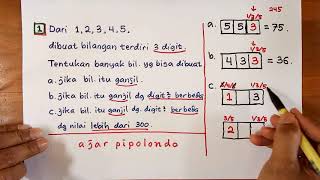 1 Dari 1, 2, 3, 4, 5.
dibuat bilangan terdiri 3 digit.
Tentukan banyak bil. yg bisa dibuat
a. jika bil. itu ganjil.
b. jika bil. itu ganjil dg digit² berbeda
c. jika bil. itu ganjil dg. digit² berbeda
dg nilai lebih dari 300.
ajar pipolondo
245
1/3/5
a. 5 5 3 = 75.
1/3/5
b. 4 3 3 = 36.
1/3/5
c. 1 3
3/5 1/3/5
2